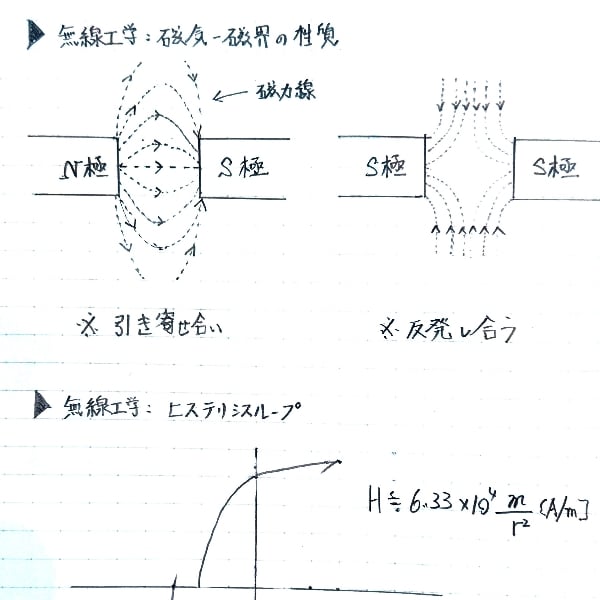 無線工学：磁気-磁界の性質
磁力線
N極
S極
S極
S極
※ 引き寄せ合い
※ 反発し合う
無線工学：ヒステリシスループ
H≒6.33×10⁴ m/r² [A/m]